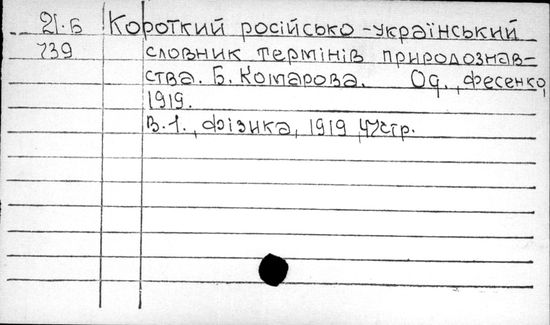 21.Б Короткий російсько-український
739 словник термінів природознав-
ства. Б. Комарова. Од., Фесенко,
1919.
В.1., Фізика, 1919, 47стр.